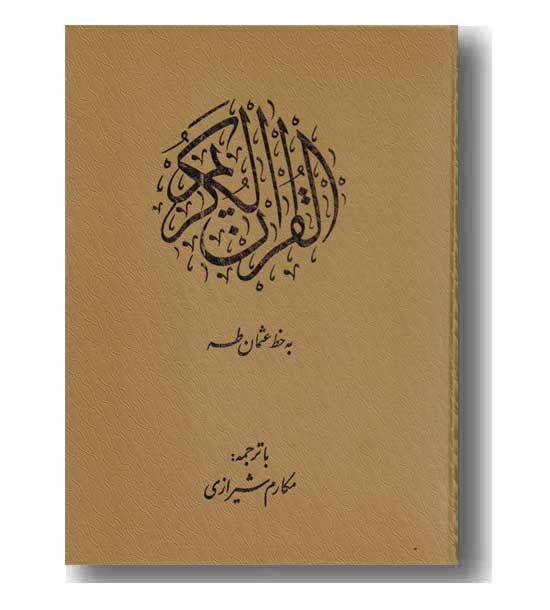 القرآن الكريم
به خط عثمان طه
با ترجمه:
مکارم شیرازی